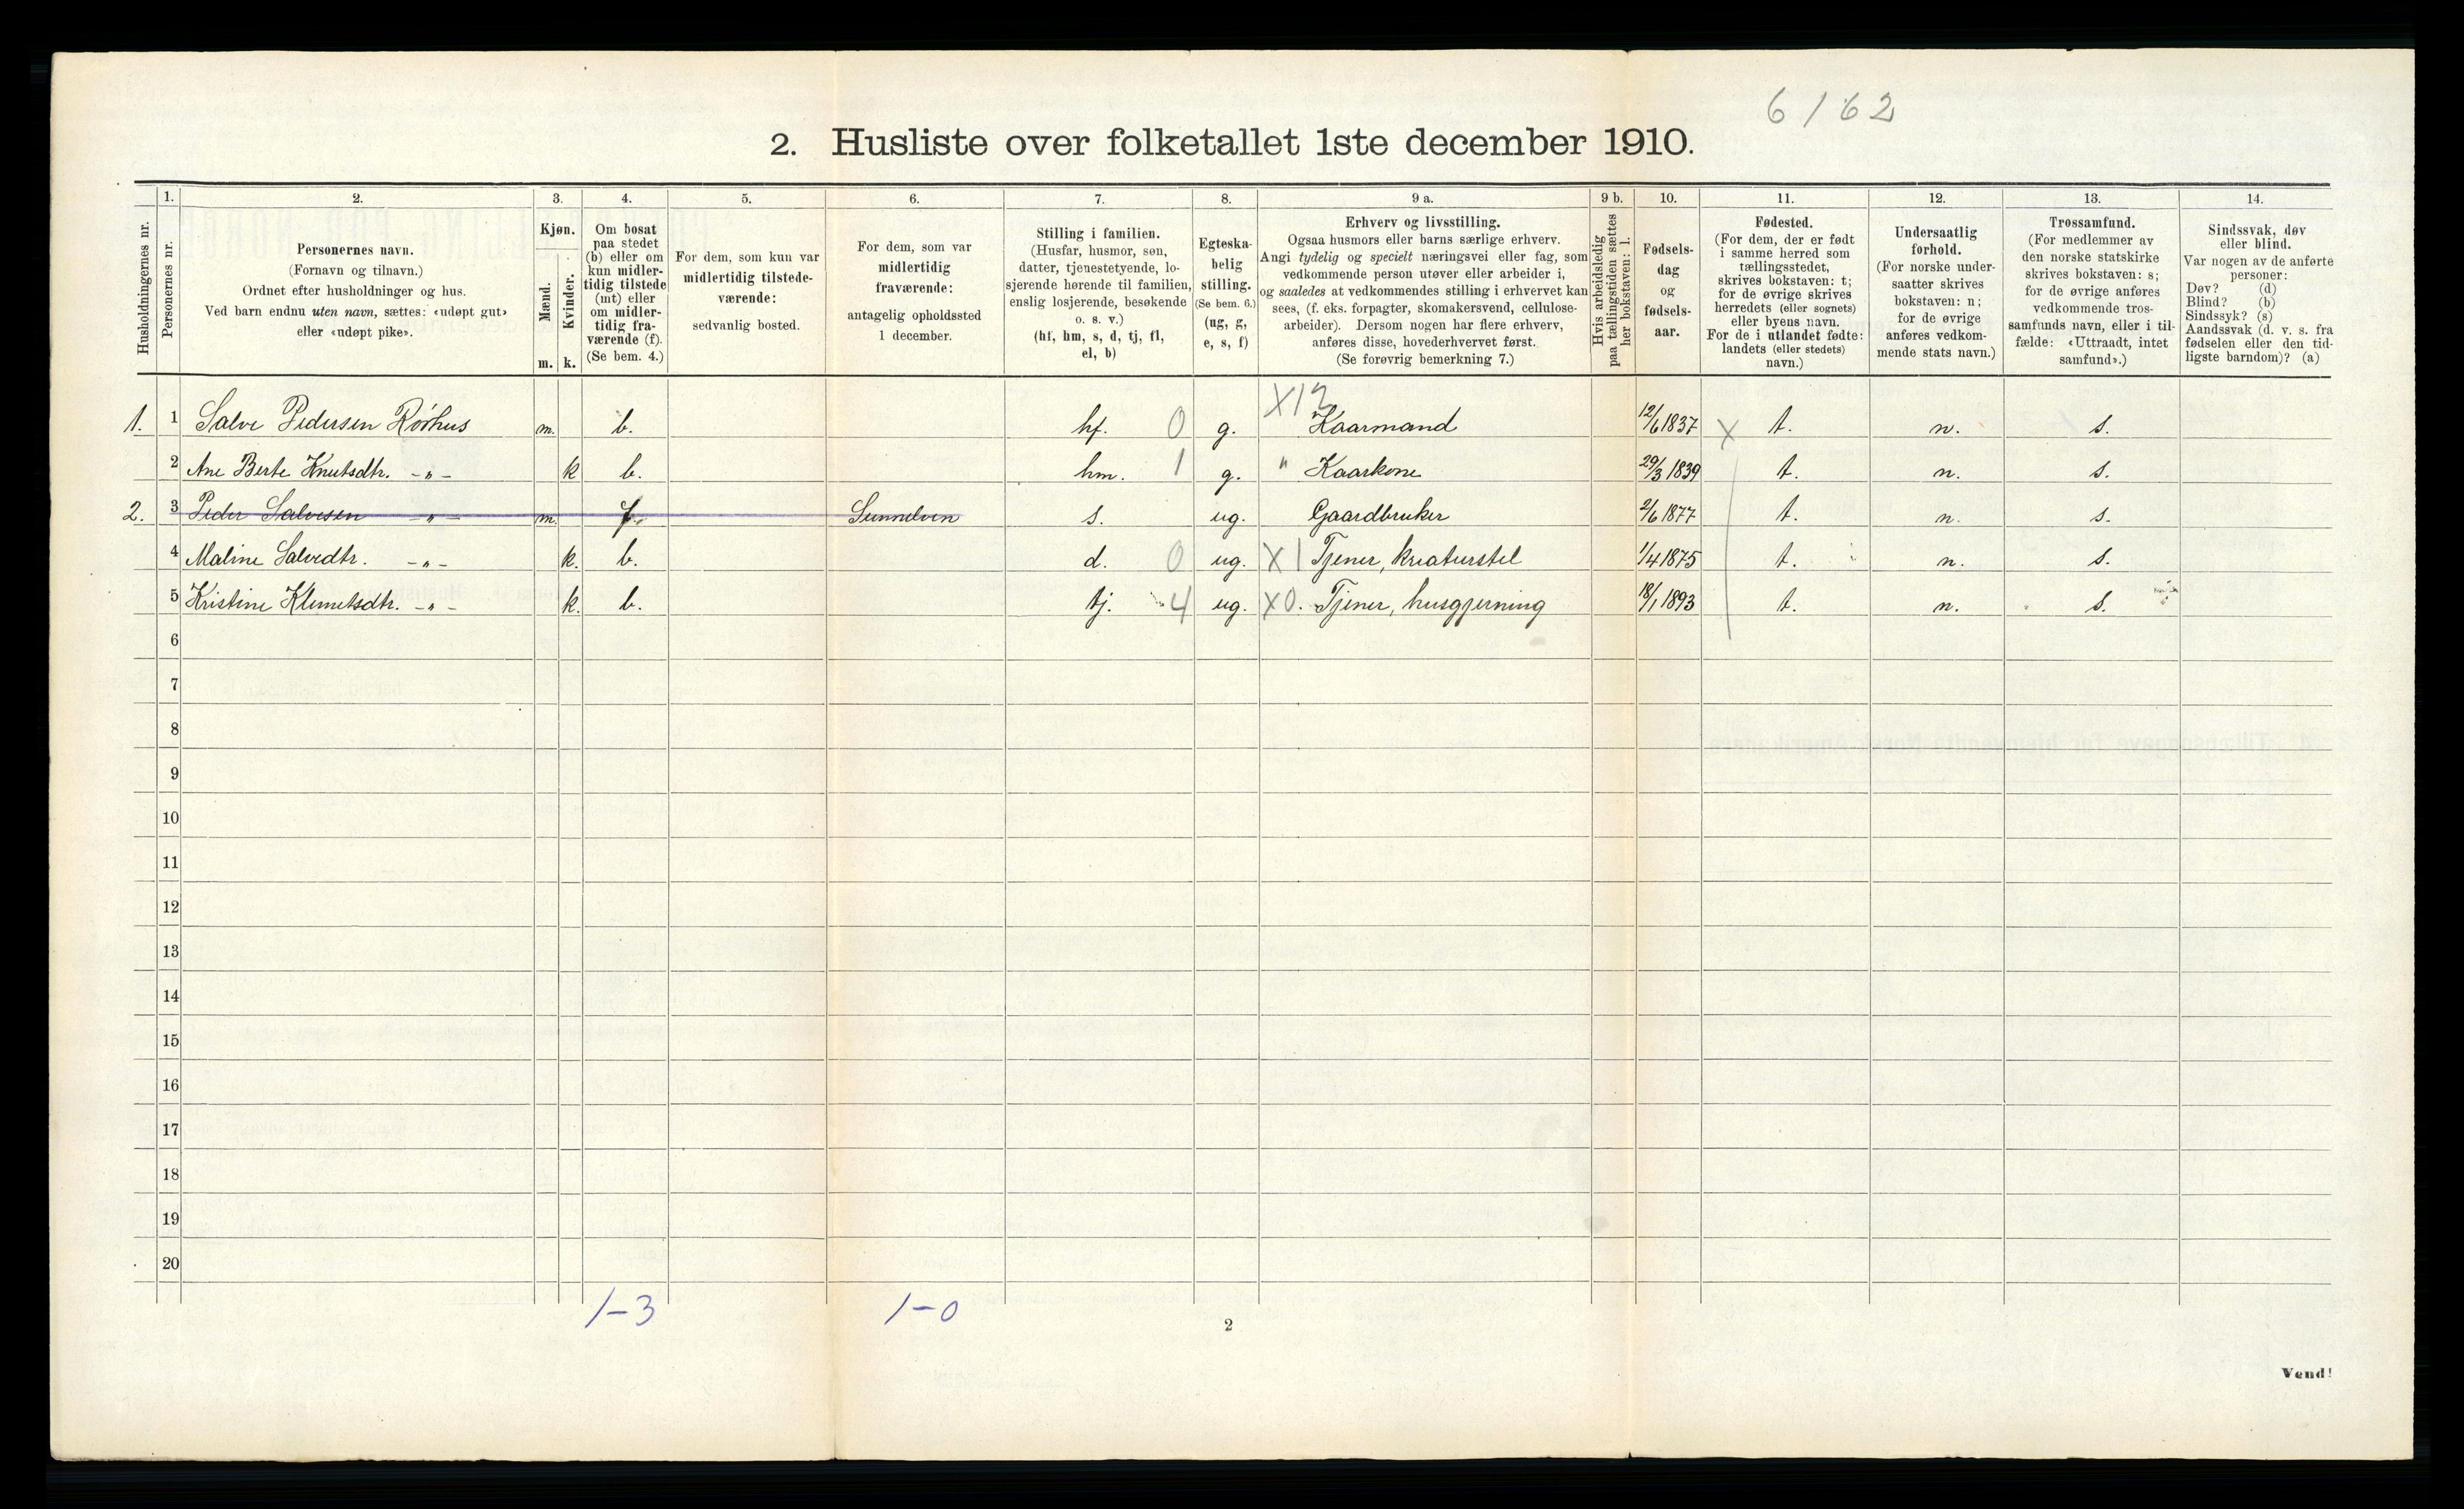 6/62
2. Husliste over folketallet 1ste december 1910.
Husholdningernes nr.
1.
Personernes nr.
2.
Personernes navn.
(Fornavn og tilnavn.)
Ordnet efter husholdninger og hus.
Ved barn endnu uten navn, sættes: «udøpt gut»
eller «udøpt pike».
3.
Kjøn.
Mænd.
Kvinder.
m. k.
4.
Om bosat
paa stedet
(b) eller om
kun midler-
tidig tilstede
(mt) eller
om midler-
tidig fra-
værende (f).
(Se bem. 4.)
5.
For dem, som kun var
midlertidig tilstede-
værende:
sedvanlig bosted.
6.
For dem, som var
midlertidig
fraværende:
antagelig opholdssted
1 december.
7.
Stilling i familien.
(Husfar, husmor, søn,
datter, tjenestetyende, lo-
sjerende hørende til familien,
enslig losjerende, besøkende
o. s. v.)
(hf, hm, s, d, tj, fl,
el, b)
8.
Egteska-
belig
stilling.
(Se bem. 6.)
(ug, g,
e, s, f)
9 a.
Erhverv og livsstilling.
Ogsaa husmors eller barns særlige erhverv.
Angi tydelig og specielt næringsvei eller fag, som
vedkommende person utøver eller arbeider i,
og saaledes at vedkommendes stilling i erhvervet kan
sees, (f. eks. forpagter, skomakersvend, cellulose-
arbeider). Dersom nogen har flere erhverv,
anføres disse, hovederhvervet først.
(Se forøvrig bemerkning 7.)
9 b.
Hvis arbeidsledig
paa tællingstiden sættes
her bokstaven: l.
10.
Fødsels-
dag
og
fødsels-
aar.
11.
Fødested.
(For dem, der er født
i samme herred som
tællingsstedet,
skrives bokstaven: t;
for de øvrige skrives
herredets (eller sognets)
eller byens navn.
For de i utlandet fødte:
landets (eller stedets)
navn.)
12.
Undersaatlig
forhold.
(For norske under-
saatter skrives
bokstaven: n;
for de øvrige
anføres vedkom-
mende stats navn.)
13.
Trossamfund.
(For medlemmer av
den norske statskirke
skrives bokstaven: s;
for de øvrige anføres
vedkommende tros-
samfunds navn, eller i til-
fælde: «Uttraadt, intet
samfund».)
14.
Sindssvak, døv
eller blind.
Var nogen av de anførte
personer:
Døv? (d)
Blind? (b)
Sindssyk? (s)
Aandssvak (d. v. s. fra
fødselen eller den tid-
ligste barndom)? (a)
1. 1 Salve Pedersen Rörhus m. b. hf. 0 g. X12 Kaarmand 12/6 1837 X t. n. s.
2 Ane Berte Knutsdtr. -„- k b. hm. 1 g. " Kaarkone 29/3 1839 t. n. s.
2. 3 Peder Salvesen -„- m. f. Sunnelven s. ug. Gaardbruker 2/6 1877 t. n. s.
4 Maline Salvedtr. -„- k. b. d. 0 ug. X1 Tjener, kreaturstel 1/4 1875 t. n. s.
5 Kristine Klemetsdtr. -„- k. b. tj. 4 ug. X0. Tjener, husgjerning 18/1 1893 t. n. s.
6
7
8
9
10
11
12
13
14
15
16
17
18
19
20
1-3 1-0
2
Vend!